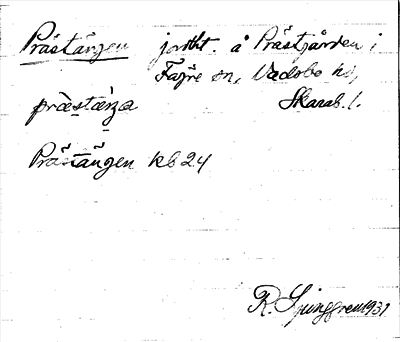 Prästängen jordbt. å Prästgården i
Fägre sn, Vadsbo hd,
præstæŋa Skarab. l.
Prästängen kb 24
R. Ljunggren 1931